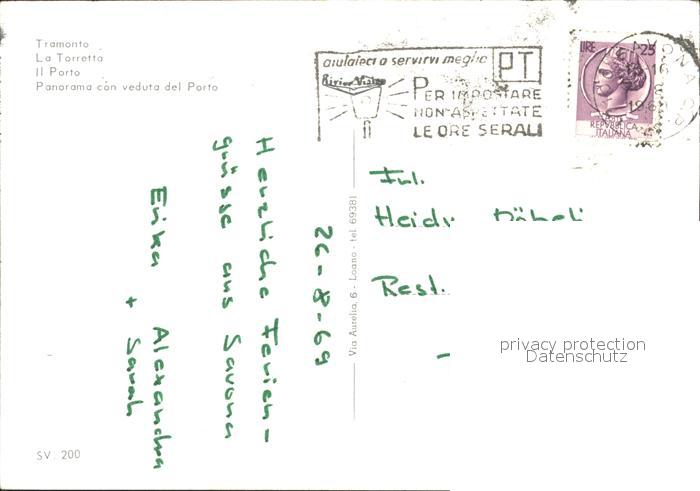 Tramonto
La Torretta
Il Porto
Panorama con veduta del Porto
aiutateci a servirvi meglio
PT
PER IMPOSTARE
NON ASPETTATE
LE ORE SERALI
LIRE 25
REPUBBLICA
ITALIANA
26-8-69
Herzliche Ferien-
grüsse aus Savona
Erika + Alexandra
Sarah
Via Aurelia, 6 - Loano - tel. 69381
Frl.
Heidi
Rest.
-
privacy protection
Datenschutz
SV. 200